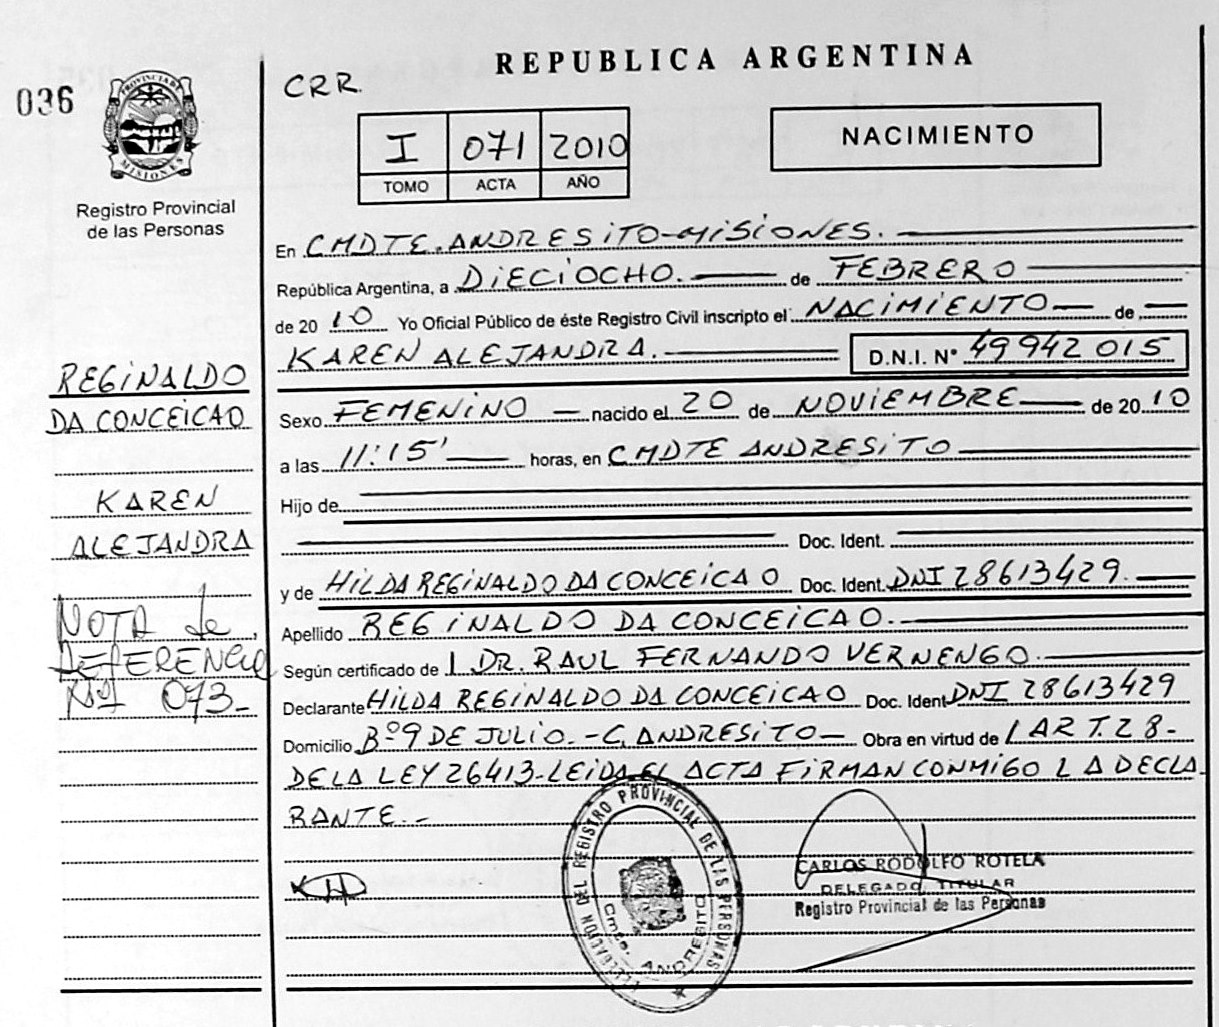 REPUBLICA ARGENTINA
036
CRR.
PROVINCIA DE
MISIONES
Registro Provincial
de las Personas
I 071 2010
TOMO ACTA AÑO
NACIMIENTO
En CMDTE. ANDRESITO-MISIONES.
República Argentina, a DIECIOCHO. de FEBRERO
de 20 10 Yo Oficial Público de éste Registro Civil inscripto el NACIMIENTO de
KAREN ALEJANDRA. D.N.I. N° 49942015
Sexo FEMENINO nacido el 20 de NOVIEMBRE de 20 10
a las 11:15' horas, en CMDTE ANDRESITO
Hijo de
Doc. Ident.
y de HILDA REGINALDO DA CONCEICAO Doc. Ident. DNI 28613429.
Apellido REGINALDO DA CONCEICAO.
Según certificado de 1 DR. RAUL FERNANDO VERNENGO.
Declarante HILDA REGINALDO DA CONCEICAO Doc. Ident DNI 28613429
Domicilio B°9 DE JULIO.-C. ANDRESITO Obra en virtud de 1 ART. 28-
DE LA LEY 26413-LEIDA EL ACTA FIRMAN CONMIGO LA DECLA
RANTE.-
REGINALDO
DA CONCEICAO
KAREN
ALEJANDRA
NOTA de
REFERENCIA
Nº 073-
DELEGACION DEL REGISTRO PROVINCIAL DE LAS PERSONAS
Cmte. ANDRESITO
CARLOS RODOLFO ROTELA
DELEGADO TITULAR
Registro Provincial de las Personas